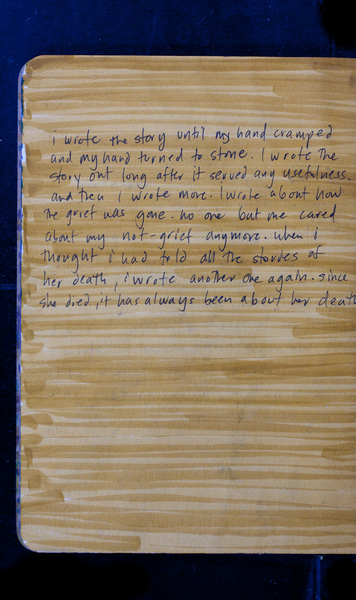 i wrote the story until my hand cramped
and my hand turned to stone. I wrote the
story out long after it served any usefulness.
and then I wrote more. I wrote about how
the grief was gone. no one but me cared
about my not-grief anymore. when i
thought i had told all the stories of
her death, i wrote another one again. since
she died, it has always been about her death